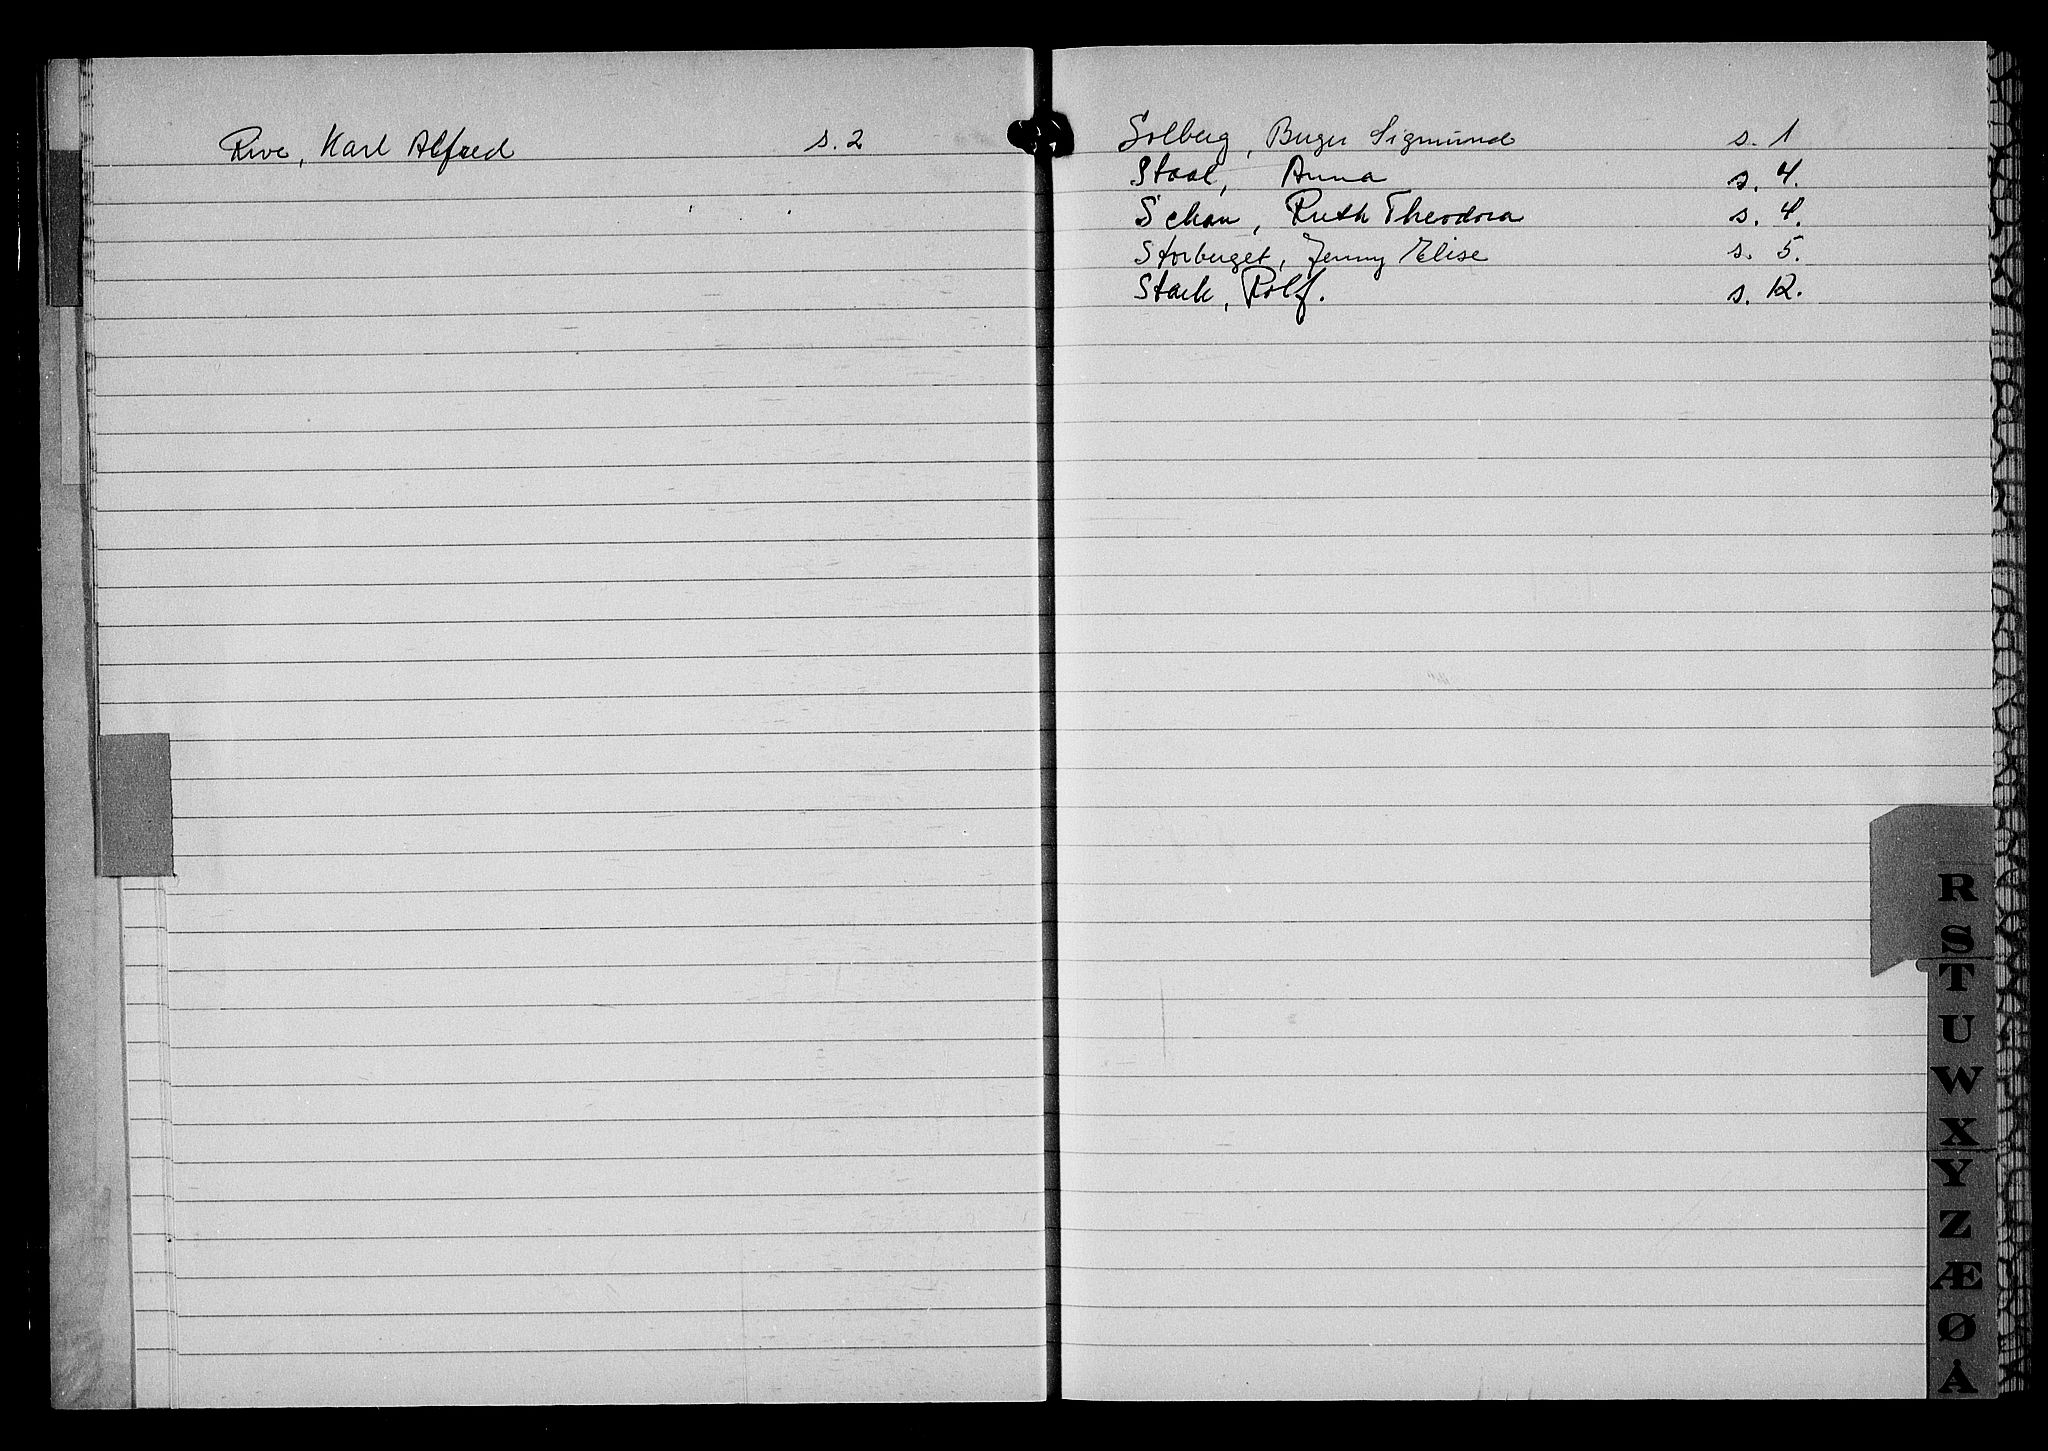 Rive, Karl Alfred s. 2
Solberg, Birger Sigmund s. 1
Staal, Anna s. 4.
Schau, Ruth Theodora s. 4.
Storberget, Jenny Elise s. 5.
Stark, Rolf. s. 12.
R
S
T
U
W
X
Y
Z
Æ
Ø
Å